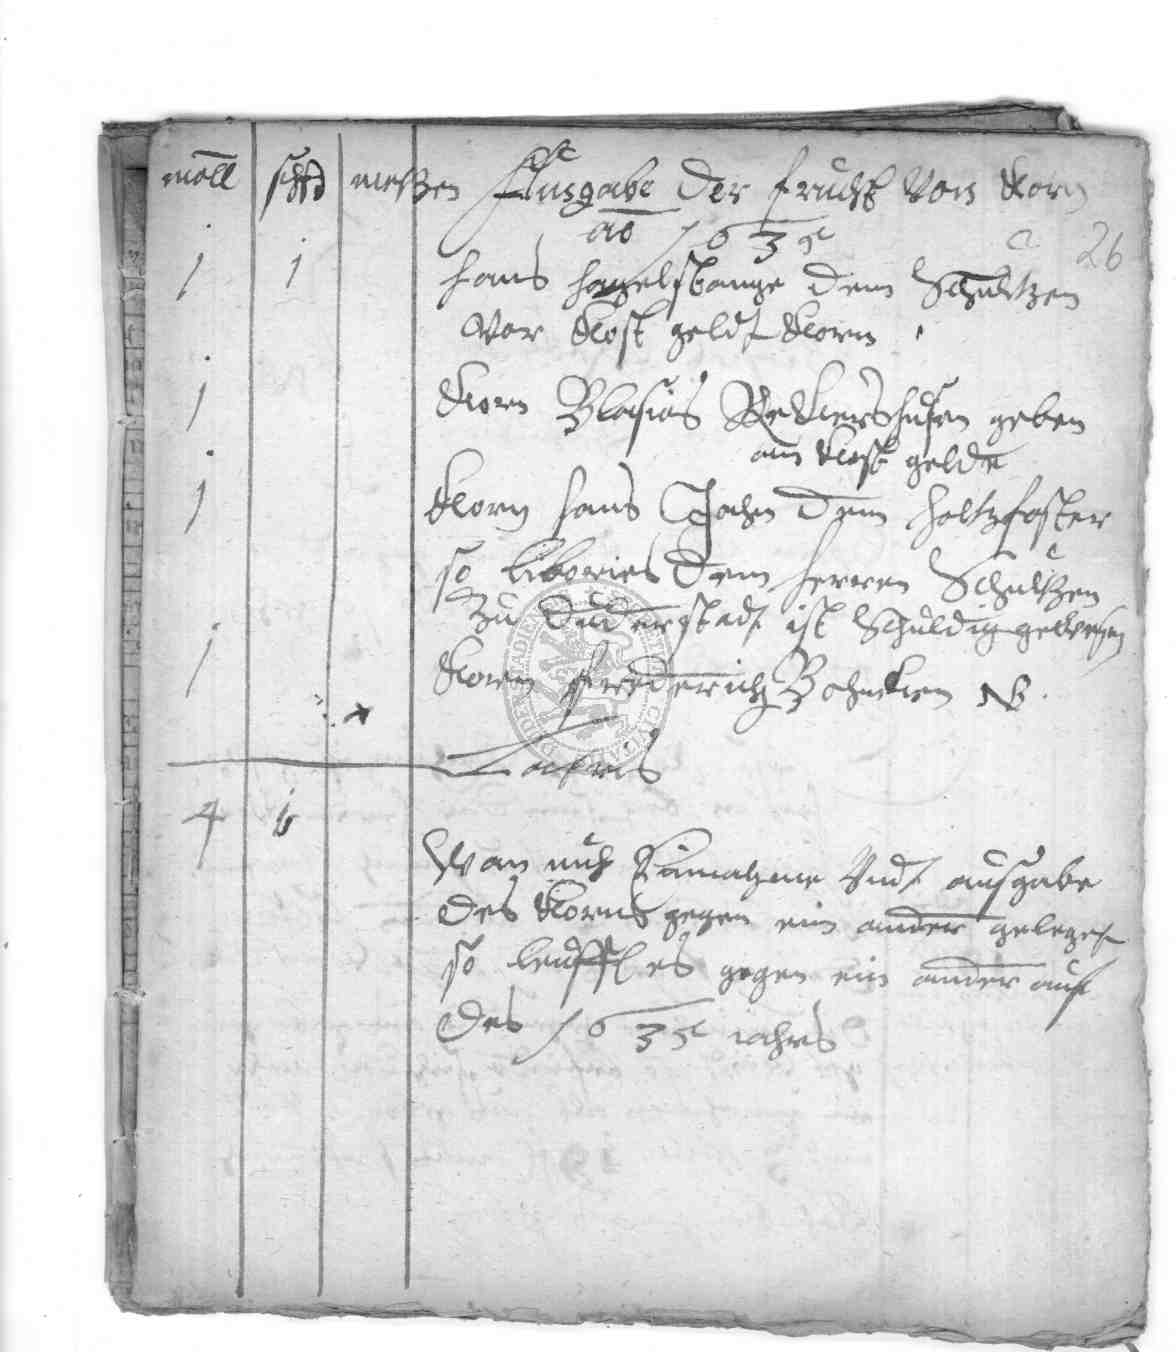 mall schfd metzen Ausgabe der frucht von Korn
ao 1635
26
1 1 Hans Hagelstange dem Schultzen
vor Kost geldt Korn
1 Korn Blasius Reckershusen geben
am Kost gelde
1 Korn Hans Jahn dem holtzfoster
so libories dem herren Schultzen
zu Duderstadt ist schuldig gewesen
1 Korn Frederich Bohncken NB.
Lateris
4
Wan nuh Einnahme Undt ausgabe
des Korns gegen ein ander geleget
so leufft es gegen ein ander auf
des 1635 iahrs